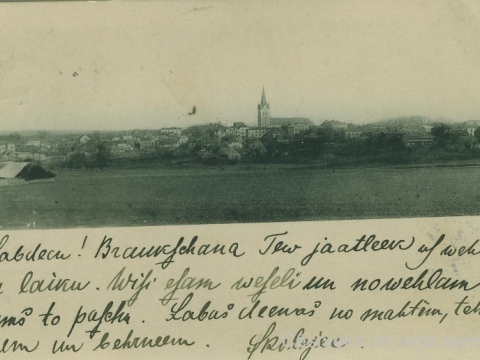 Labdeen! Braukschana Tew jaatleek us weh-
laiku. Wisi esam weseli un nowehlam
to paschu. Labas deenas no mahtem, teh-
un behrneem. Skolnjee